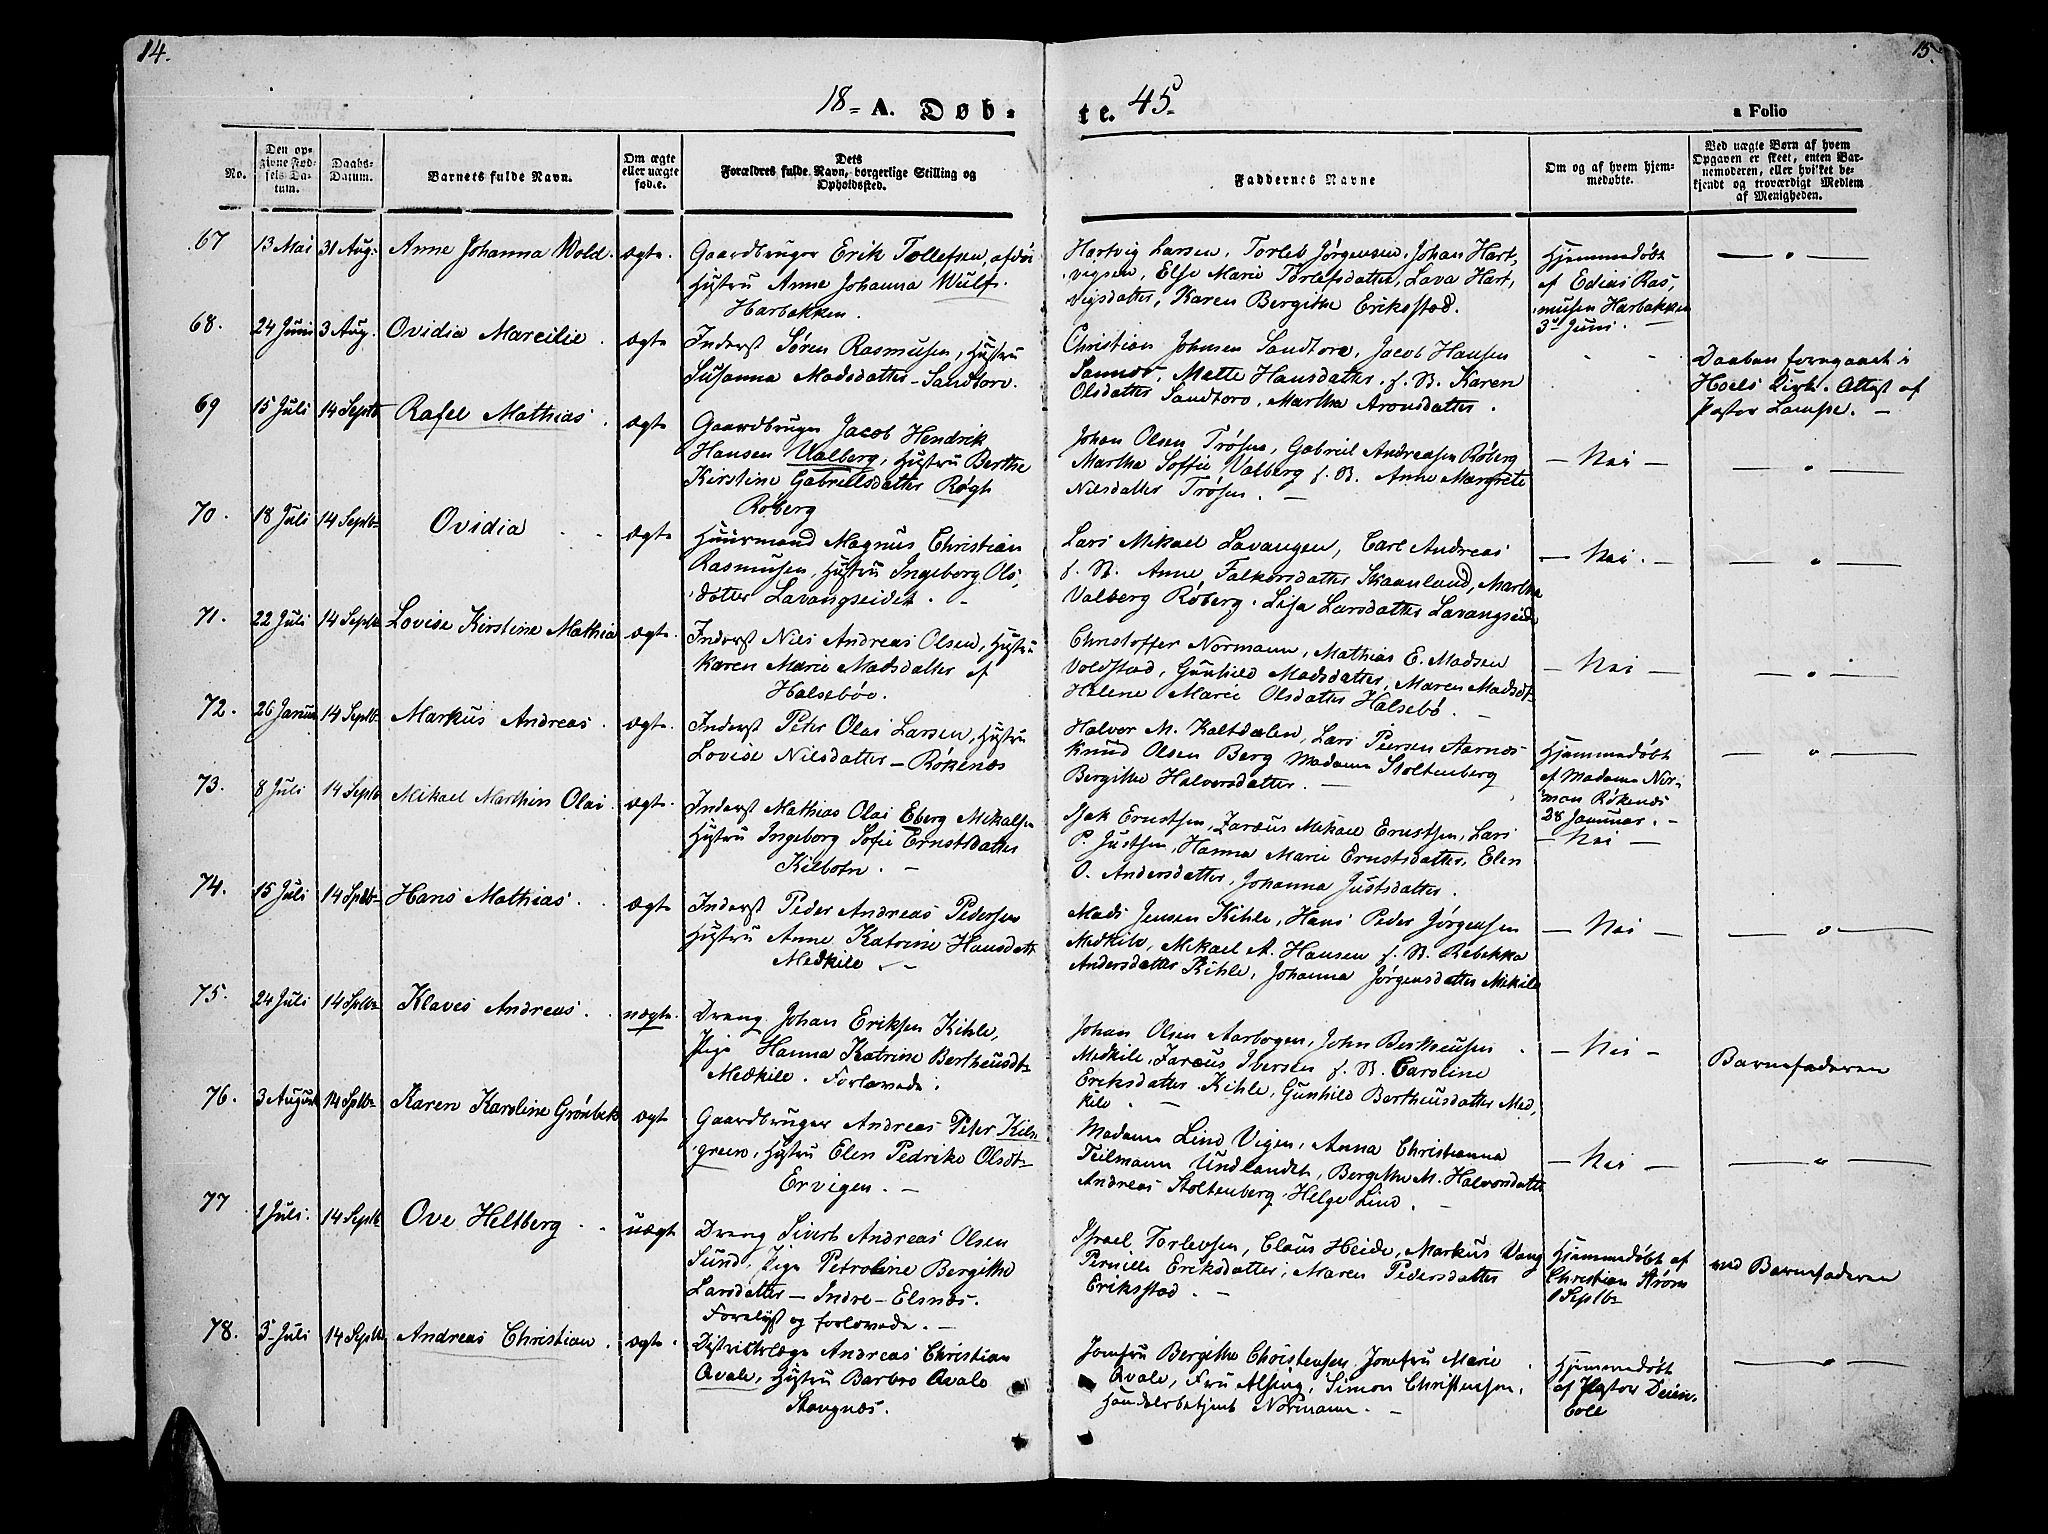 14.
15.
18- A. Døb-
te. 45-
a Folio
No.
Den op-
givne Fød-
sels Da-
tum.
Daabs-
Datum.
Barnets fulde Navn.
Om ægte
eller uægte
fød.e.
Dets
Forældres fulde Navn, borgerlige Stilling og
Opholdssted.
Faddernes Navne
Om og af hvem hjem-
medøbte.
Ved uægte Børn af hvem
Opgaven er skeet, enten Bar-
nemoderen, eller hvilket be-
kjendt og troværdigt Medlem
af Menigheden.
67 13 Mai 31 Aug. Anne Johanna Wold. ægte.
Gaardbruger Erik Tollefsen, afdøde
Hustru Anne Johanna Wulf.
Harbakken.
Hartvig Larsen, Torleif Jørgensen, Johan Hart,
vigsen, Else Marie Torlefsdatter, Lava Hart,
vigsdatter, Karen Bergithe Eriksstad.
Hjemmedøbt
af Edias Ras,
musen Harbakken
3 Juni. —
68. 24 Juni 3 Aug. Ovidia Marcilie . ægte
Inderst Søren Rasmusen, Hustru
Susanna Madsdatter - Sandtorv.
Christian Johnsen Sandtorv, Jacob Hansen
Sannes, Mette Hansdatter. f. B. Karen
Olsdatter Sandtorv, Martha Aronsdatter.
Daaben foregaaet i
Hoels Kirk. Attest af
Pastor Lampe. —
69 15 Juli 14 Septb Rafel Mathias . ægte
Gaardbruger Jacob Hendrik
Hansen Valberg, Hustru Berthe
Kirstine Gabrielsdatter Røgh
Røberg
Johan Olsen Trøsen, Gabriel Andreasen Røberg
Martha Soffie Valberg f. B. Anne Margrete
Nilsdatter Trøsen. —
— Nei —
70. 18 Juli 14 Septb- Ovidia . . ægte
Huurmand Magnus Christian
Rasmusen, Hustru Ingeborg Ols,
datter Lavangseidet. -
Lars Mikael Lavangen, Carl Andreas
f. B. Anne Falkorsdatter Skaanland, Martha
Valberg Røberg. Lisa Larsdatter Lavangseid
— Nei. —
71. 22 Juli 14 Septb Lovise Kirstine Mathia ægte.
Inderst Nils Andreas Olsen, Hustru
Karen Marie Madsdatter af
Halsebøe.
Christoffer Normann, Mathias E. Madsen
Voldstad, Gunhild Madsdatter, Maren Madsdt-
Helene Marie Olsdatter Halsebø. —
— Nei —
72. 26 Januar 14 Septb- Markus Andreas. . ægte.
Inderst Peter Olai Larsen, Hustru
Lovise Nilsdatter — Røkenes
Halvor M. Kaltdalen, Lars Piersen Aarnæs
Knud Olsen Berg Madame Stoltenberg
Bergithe Halversdatter. —
Hjemmedøbt
af Madame Nor-
man Røkenes
28 Januar. —
73. 8 Juli 14 Septb Mikael Marthin Olai. ægte.
Inderst Mathias Olai Eberg Mekalsen
Hustru Ingeborg Sofie Ernstsdatter
Kilbotn. —
Isak Ernstsen, Zaræus Mikael Ernstsen, Lars
P. Justsen, Hanna Marie Ernstsdatter, Elen
O. Andersdatter, Johanna Justsdatter.
— Nei —
74. 15 Juli 14 Septb- Hans Mathias . . ægte
Inderst Peder Andreas Pedersen
Hustru Anne Katrine Hansdatt
Medkile —
Mads Jensen Kihle, Hans Peder Jørgensen
Medkile, Mekael A. Hansen f. B. Rebekka
Andersdatter Kihle, Johanna Jørgensdatter Mekile
— Nei —
75. 24 Juli 14 Septb- Klaves Andreas . . uægte.
Dreng Johan Eriksen Kihle,
Pige Hanna Katrine Bertheusdt-
Medkile. Forlovede.
Johan Olsen Aarbogen, John Bertheusen
Medkile, Zaræus Iversen f. B. Caroline
Eriksdatter Kihle, Gunhild Bertheusdatter Med,
kile. —
— Nei —
Barnefaderen
76. 3 August 14 Septb- Karen Karoline Grønbek ægt
Gaardbruger Andreas Peter Kils-
green, Hustru Elen Pedrike Olsdt-
Ervigen. —
Madame Lind Vigen, Anna Christianna
Teilmann Undlandet, Bergithe M. Halvorsdatter
Andreas Stoltenberg, Helge Lind. —
— Nei —
77 1 Juli. 14 Septb Ove Heltberg . . uægt
Dreng Sivert Andreas Olsen
Sund, Pige Petroline Bergithe
Larsdatter — Indre - Elsnæs.
Forelyst og forlovede. —
Israel Torlevsen, Claus Heide, Markus Vang
Pernille Eriksdatter, Maren Pedersdatter
Eriksstad. —
Hjemmedøbt af
Christian Strøm
1 Septb-
ved Barnefaderen
78. 3 Juli 14 Septb Andreas Christian . ægte.
Districtslæge Andreas Christian
Qvale, Hustru Barbro Qvale
Stangnæs.
Jomfru Bergithe Christensen, Jomfru Marie
Qvale, Fru Alsing, Simon Christensen,
Handelsbetjent Normann. —
Hjemmedøbt
af Pastor Deien-
boll